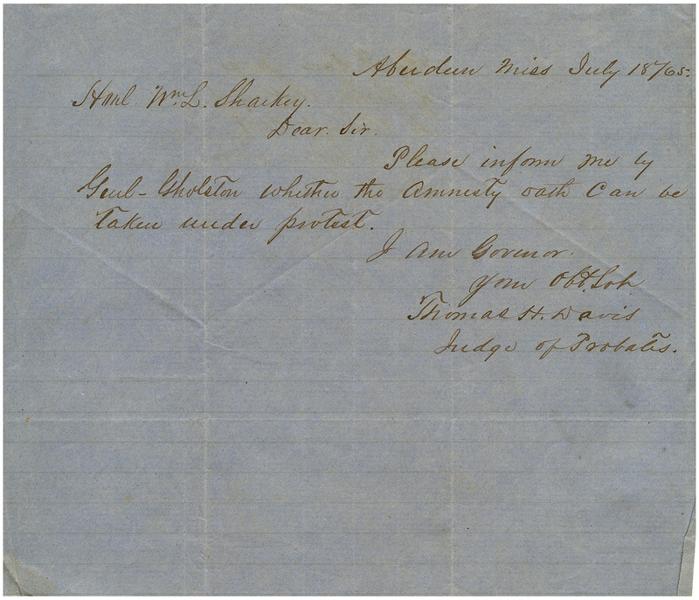 Aberdeen Miss July 18/65.
Honl Wm L. Sharkey.
Dear Sir.
Please inform me by
Genl- Gholston whether the Amnesty oath Can be
taken under protest.
I Am Govenor.
your Obt.
Thomas H. Davis
Judge of Probates.